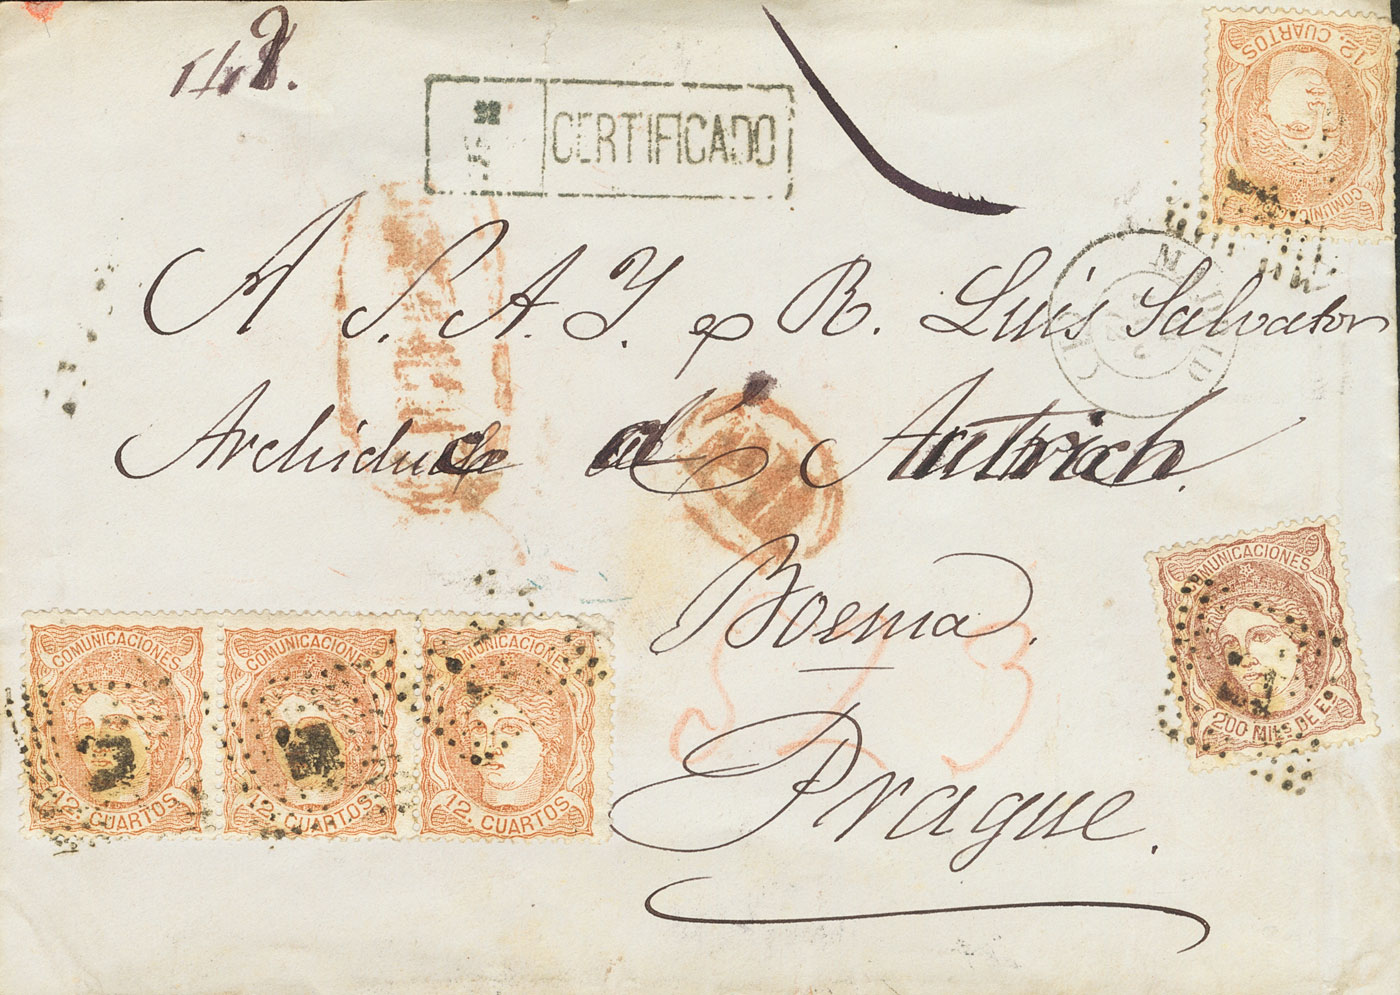 148.
CERTIFICADO
12. CUARTOS
COMUNICACIONES
MADRID
A S. A. Y. e R. Luis Salvator
Archiduc d' Autrich.
Boema.
Prague.
23
COMUNICACIONES
200 MILS DE Eo
COMUNICACIONES
12. CUARTOS
COMUNICACIONES
12. CUARTOS
COMUNICACIONES
12. CUARTOS